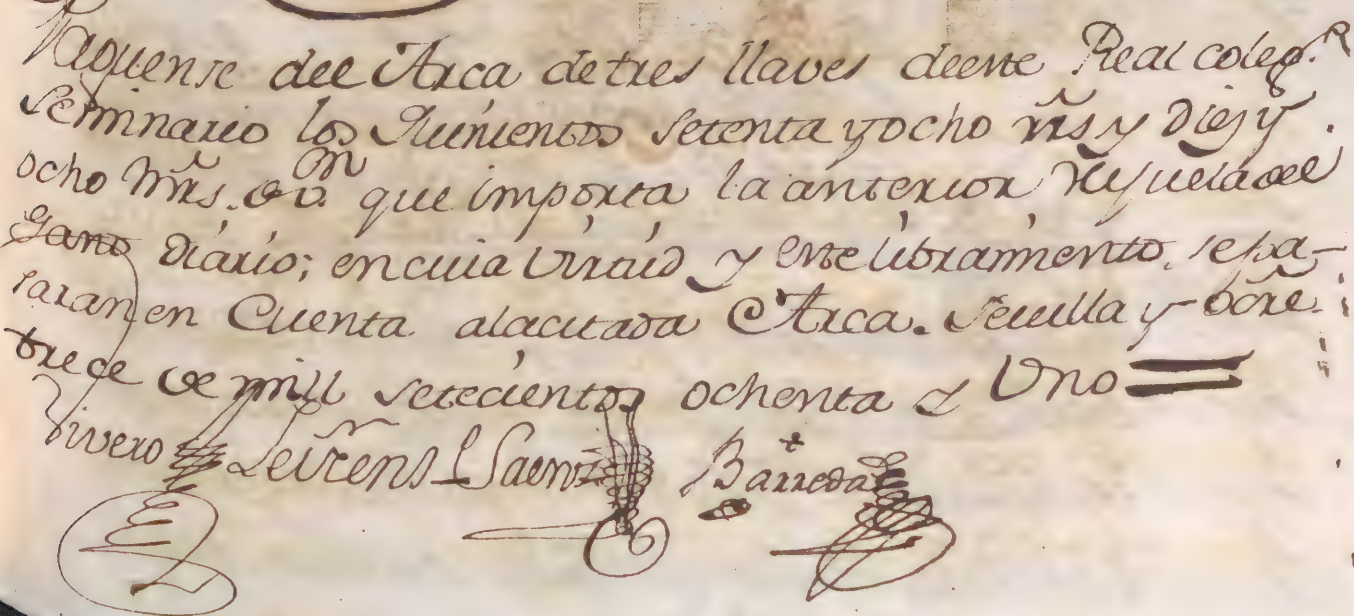 Paguense del Arca de tres llaves deeste Real coleg.^R
Seminario los Quinientos Setenta y ocho rr̃s y Diez y
ocho mr̃s. de v.^n que importa la anterior rehijuela del
Gasto Diário; en cuia Virtud y este libramiento, se pa-
saran en Cuenta ala citada Arca. Sevilla y Oct̃re.
trece de mill setecientos ochenta y Uno=
Vivero Leirens L Saenz Barreda